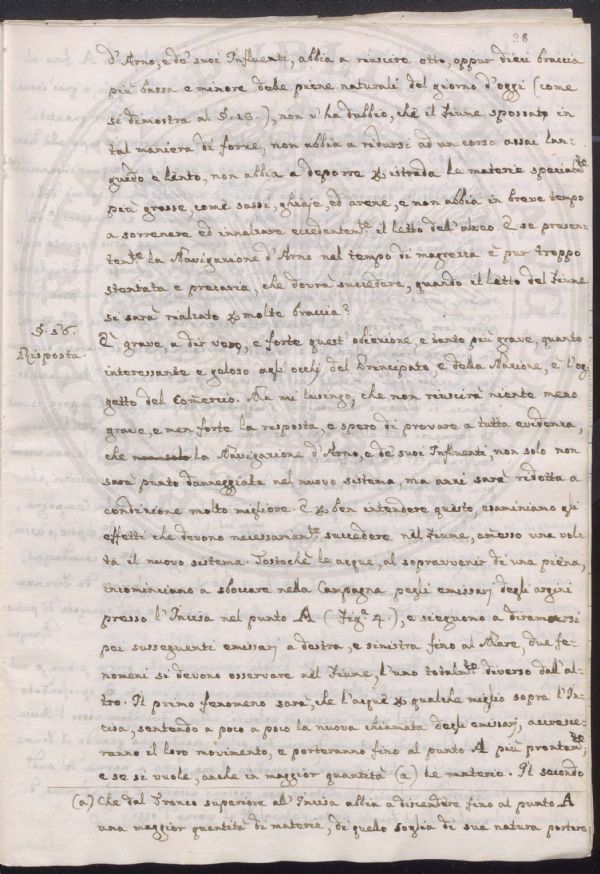 28
d'Arno, e de' suoi Influenti, abbia a riuscire otto, oppur dieci braccia
più bassa e minore delle piene naturali del giorno d'oggi (come
si dimostra al §. 18.), non v'ha dubbio, che il Fiume spossato in
tal maniera di forze, non abbia a ridursi ad un corso assai lan-
guido e lento, non abbia a deporre p istrada le materie specialmte
più grosse, come sassi, ghiaje, ed arene, e non abbia in breve tempo
a sorrenare ed innalzare eccedentemte il letto dell'alveo. E se presen-
temte la Navigazione d'Arno nel tempo di magrezza è pur troppo
stentata e precaria, che dovrà succedere, quando il letto del Fiume
si sarà rialzato p molte braccia?
§. 56.
Risposta.
È grave, a dir vero, e forte quest'obiezione, e tanto più grave, quanto
interessante e geloso agli occhj del Principato e della Nazione, è l'og-
getto del Comercio. Ma mi lusingo, che non riuscirà niente meno
grave, e men forte la risposta, e spero di provare a tutta evidenza,
che la Navigazione d'Arno, e de' suoi Influenti, non solo non
sarà punto danneggiata nel nuovo sistema, ma anzi sarà ridotta a
condizione molto migliore. E p ben intendere questo, esaminiamo gli
effetti che devono necessariamte succedere nel Fiume, amesso una vol-
ta il nuovo sistema. Tostochè le acque, al sopravvenir di una piena,
incominciano a sboccare nella Campagna pegli emissarj degli argini
presso l'Incisa nel punto A (Figa 4.), e sieguono a diramarsi
pei susseguenti emissarj a destra, e sinistra fino al Mare, due fe-
nomeni si devono osservare nel Fiume, l'uno totalmte diverso dall'al-
tro. Il primo fenomeno sarà, che l'acque p qualche miglio sopra l'In-
cisa, sentendo a poco a poco la nuova chiamata degli emissarj, accresce-
ranno il loro movimento, e porteranno fino al punto A più prontamte,
e se si vuole, anche in maggior quantità (a) le materie. Il secondo
(a) Che dal Tronco superiore all'Incisa abbia a discendere fino al punto A
una maggior quantità di materie, di quello soglia di sua natura portare